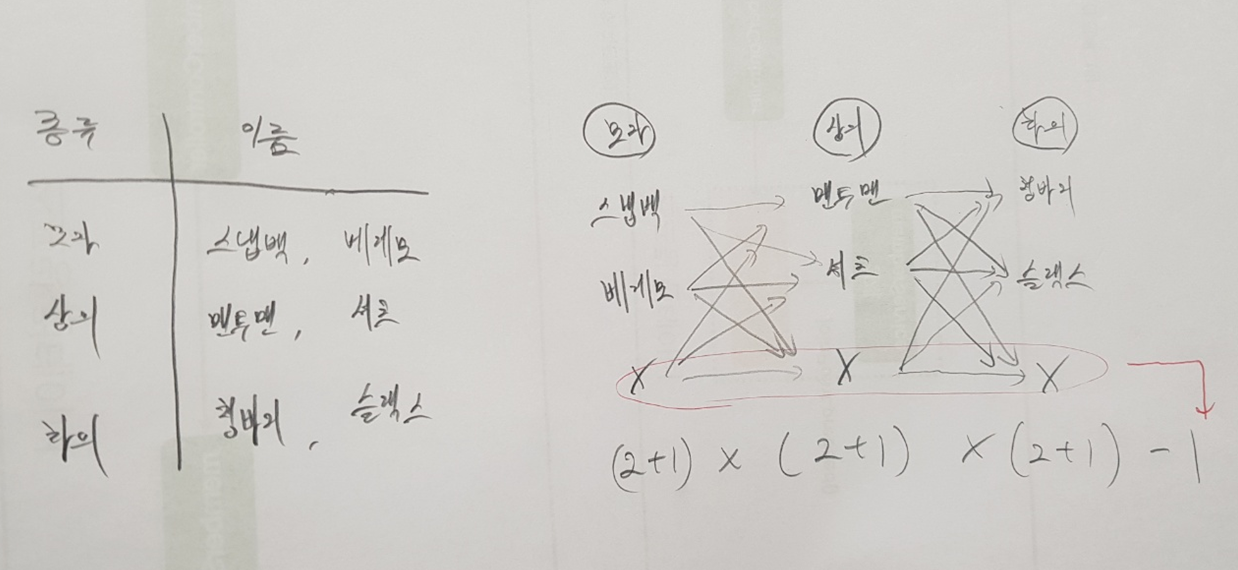 종류 이름
모자 스냅백, 베레모
상의 맨투맨, 셔츠
하의 청바지, 슬랙스
모자 상의 하의
스냅백 맨투맨 청바지
베레모 셔츠 슬랙스
X X X
(2+1) x (2+1) x (2+1) - 1